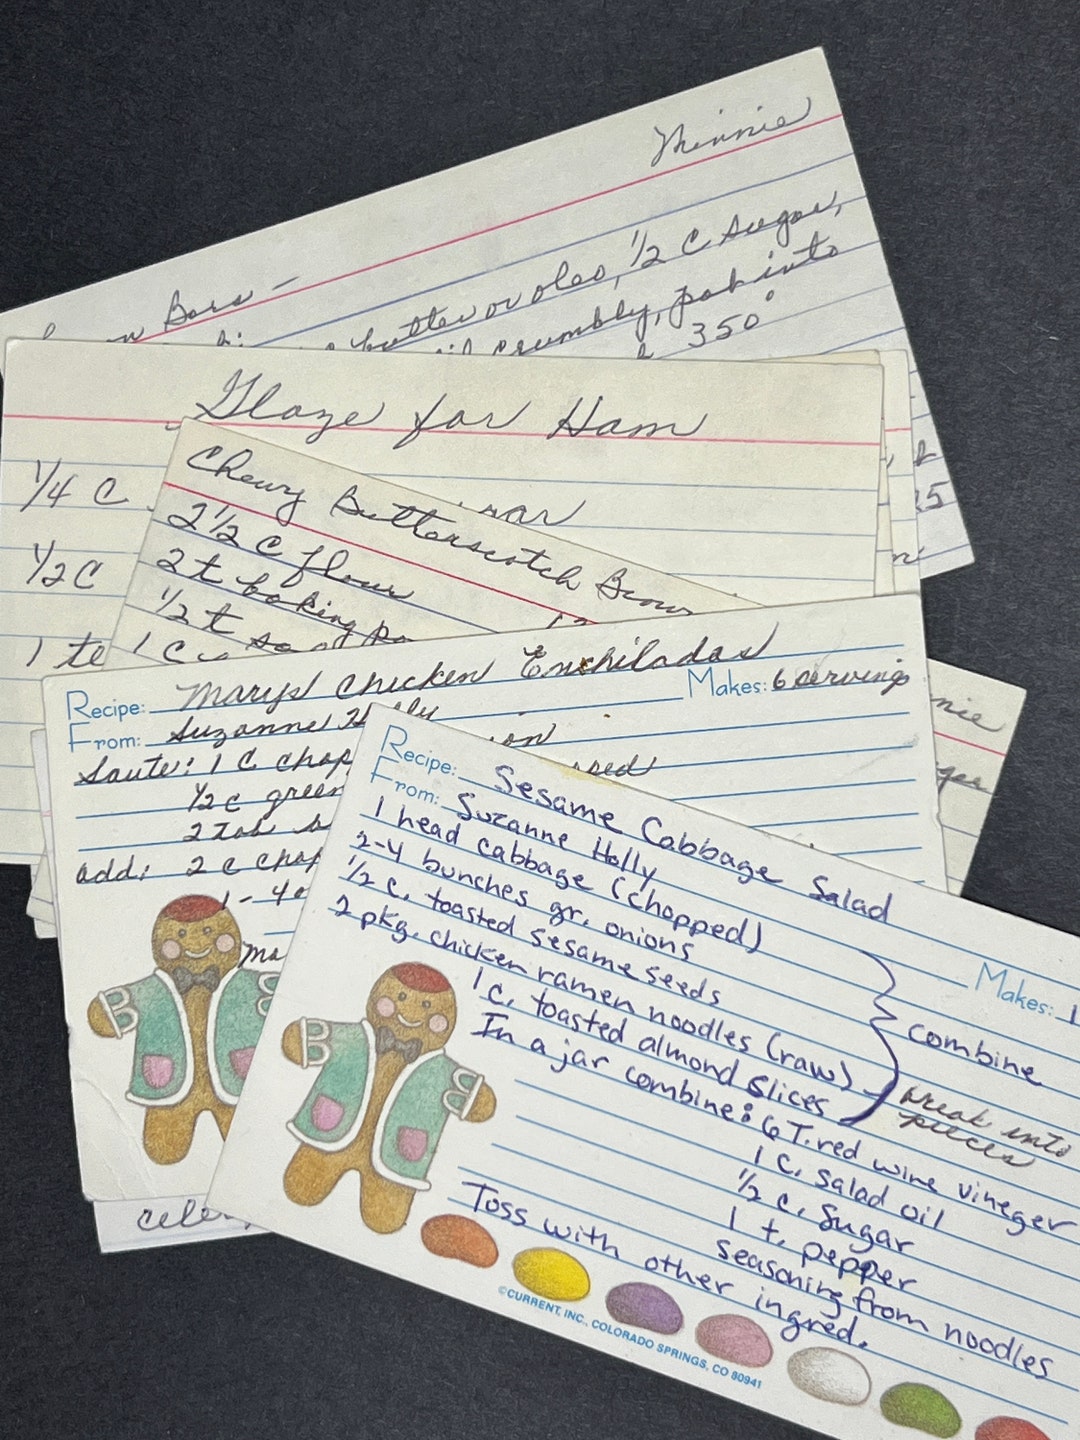 Minnie
Bars -
butter or oleo, 1/2 C Sugar,
crumbly, pat into
350°
Glaze for Ham
1/4 C
1/2 C
1 te
Chewy Butterscotch Brow
2 1/2 C flour
2 t baking po
1/2 t
1 C
Recipe: Marys Chicken Enchiladas
Makes: 6 servings
From: Suzanne Holly
Saute: 1 C chop
1/2 C green
2 Tab
add: 2 C chop
1 - 4o
Recipe: Sesame Cabbage Salad
From: Suzanne Holly
Makes: 1
1 head cabbage (chopped)
2-4 bunches gr. onions
1/2 c. toasted sesame seeds
2 pkg. chicken ramen noodles (raw)
1 c. toasted almond slices
combine
break into
pieces
In a jar combine: 6 T. red wine vineger
1 c. salad oil
1/2 c. sugar
1 t. pepper
seasoning from noodles
Toss with other ingred.
©CURRENT, INC., COLORADO SPRINGS, CO 80941